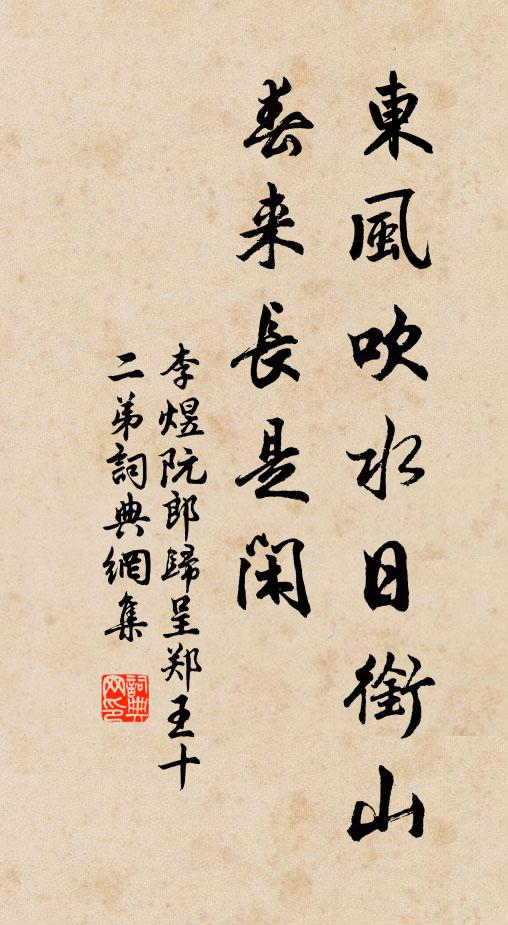 東風吹水日銜山
春来長是閑
李煜阮郎歸呈郑王十
二弟詞典網集
詞典
网印